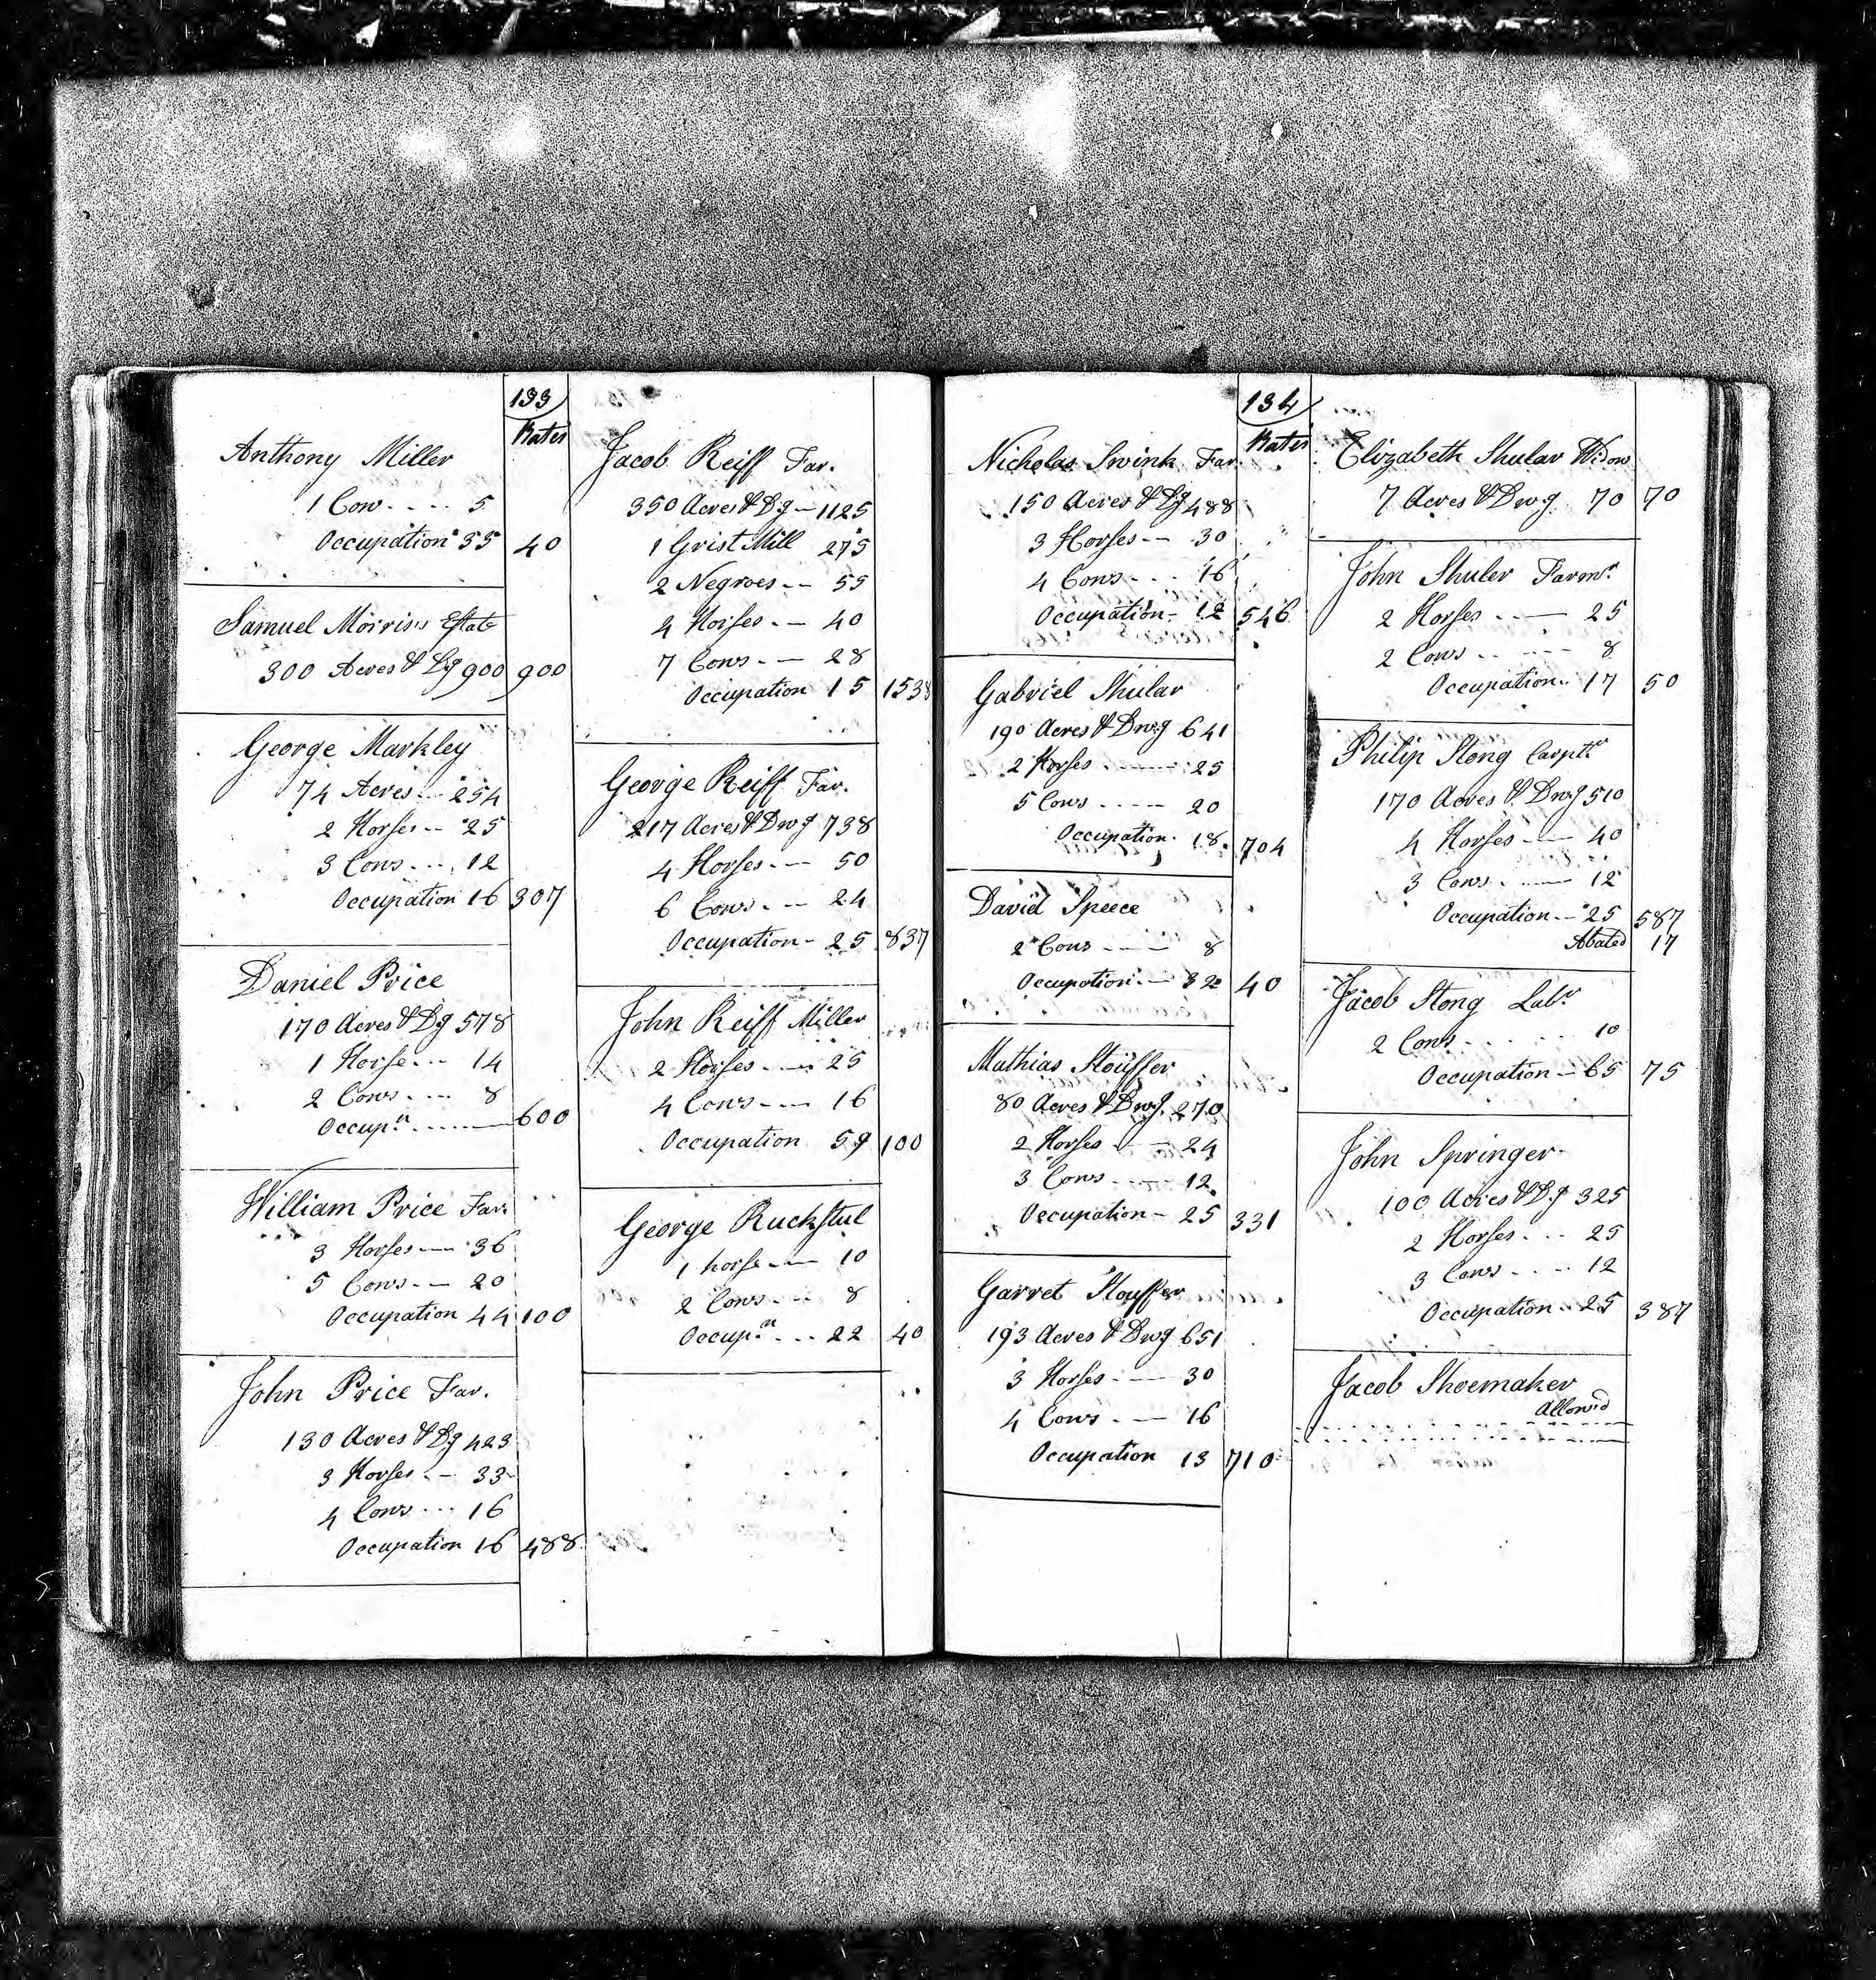 133
Rates
Anthony Miller
1 Cow .... 5
Occupation 35 40
Samuel Morris's Estate
300 Acres & Dg 900 900
George Markley
74 Acres .. 254
2 Horses -- 25
3 Cows ... 12
Occupation 16 307
Daniel Price
170 Acres & Dg 578
1 Horse ... 14
2 Cows .... 8
Occup.n ..... 600
William Price Far.
3 Horses — 36
5 Cows -- 20
Occupation 44 100
John Price Far.
130 Acres & Dg 423
3 Horses -- 33
4 Cows ... 16
Occupation 16 488
Jacob Reiff Far.
350 Acres & Dg — 1125
1 Grist Mill 275
2 Negroes -- 55
4 Horses -- 40
7 Cows -- 28
Occupation 15 1538
George Reiff Far.
217 Acres & Dwg 738
4 Horses -- 50
6 Cows -- 24
Occupation - 25 837
John Reiff Miller
2 Horses --- 25
4 Cows --- 16
Occupation 59 100
George Ruckstul
1 horse --- 10
2 Cows --- 8
Occup.n ... 22 40
134
Rates
Nicholas Swink Far.
150 Acres & Dg 488
3 Horses -- 30
4 Cows ... 16
Occupation - 12 546
Gabriel Shular
190 Acres & Dwg 641
2 Horses ---- 25
5 Cows ---- 20
Occupation . 18 704
David Speece
2 Cows ---- 8
Occupation -- 32 40
Mathias Stouffer
80 Acres & Dwg. 270
2 Horses --- 24
3 Cows ---- 12
Occupation - 25 331
Garret Stouffer
193 Acres & Dwg 651
3 Horses --- 30
4 Cows -- 16
Occupation 13 710
Elizabeth Shular Widow
7 Acres & Dwg 70 70
John Shuler Farmr.
2 Horses --- 25
2 Cows ---- 8
Occupation .. 17 50
Philip Stong Carptr.
170 Acres & Dwg 510
4 Horses --- 40
3 Cows . --- 12
Occupation -- 25 587
Abated 17
Jacob Stong Labr.
2 Cows ..... 10
Occupation — 65 75
John Springer
100 Acres & Dg 325
2 Horses ... 25
3 Cows .... 12
Occupation .. 25 387
Jacob Shoemaker
Allow'd